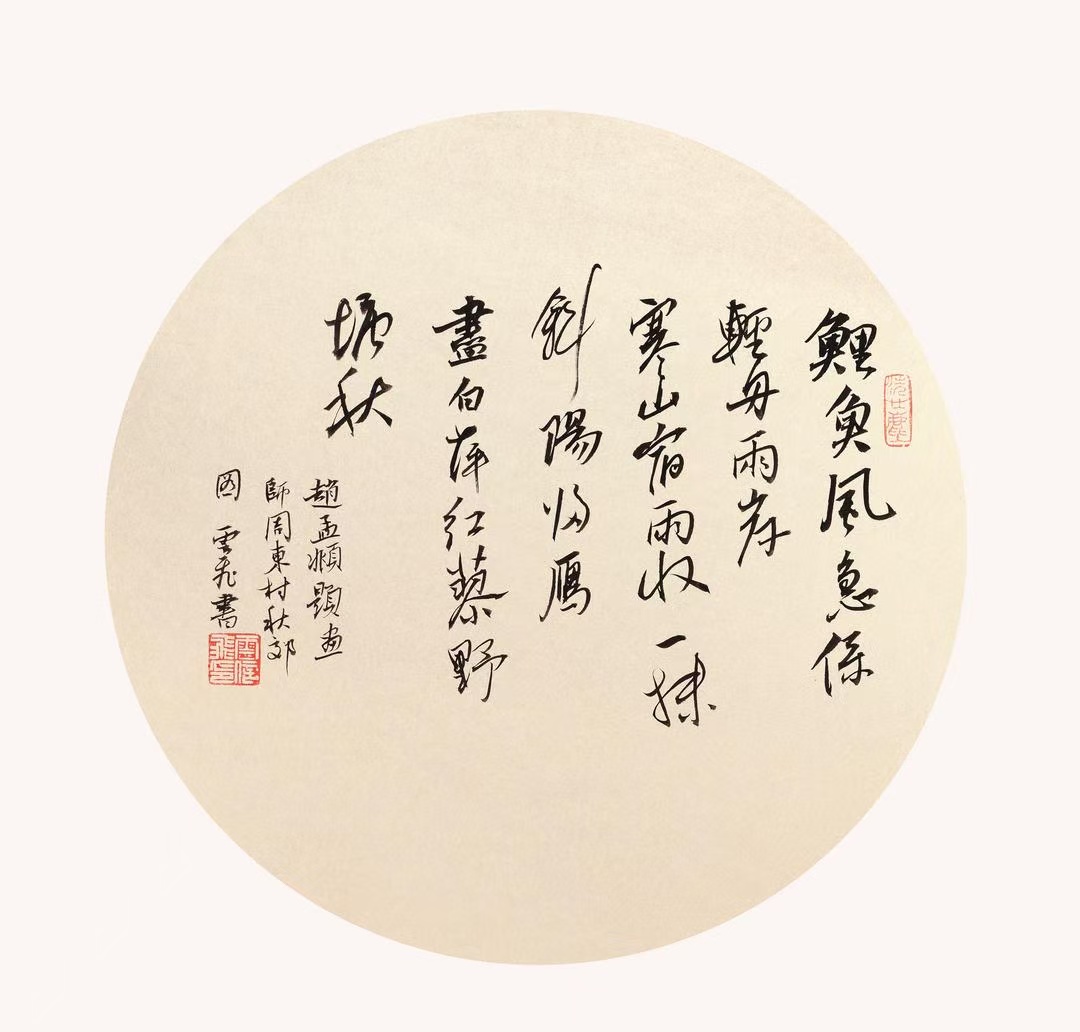 鯉魚風急係
輕舟兩岸
寒山宿雨收一抹
斜陽归鴈
盡白萍红蓼野
塘秋
趙孟頫題畫
師周東村秋郊
图雲飛書